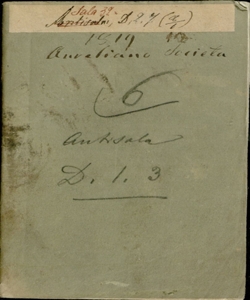 Sala 32a
Antisala, D. 2. 7 (3)
1919
Aureliano Secreta
6
Antisala
D. 1. 3